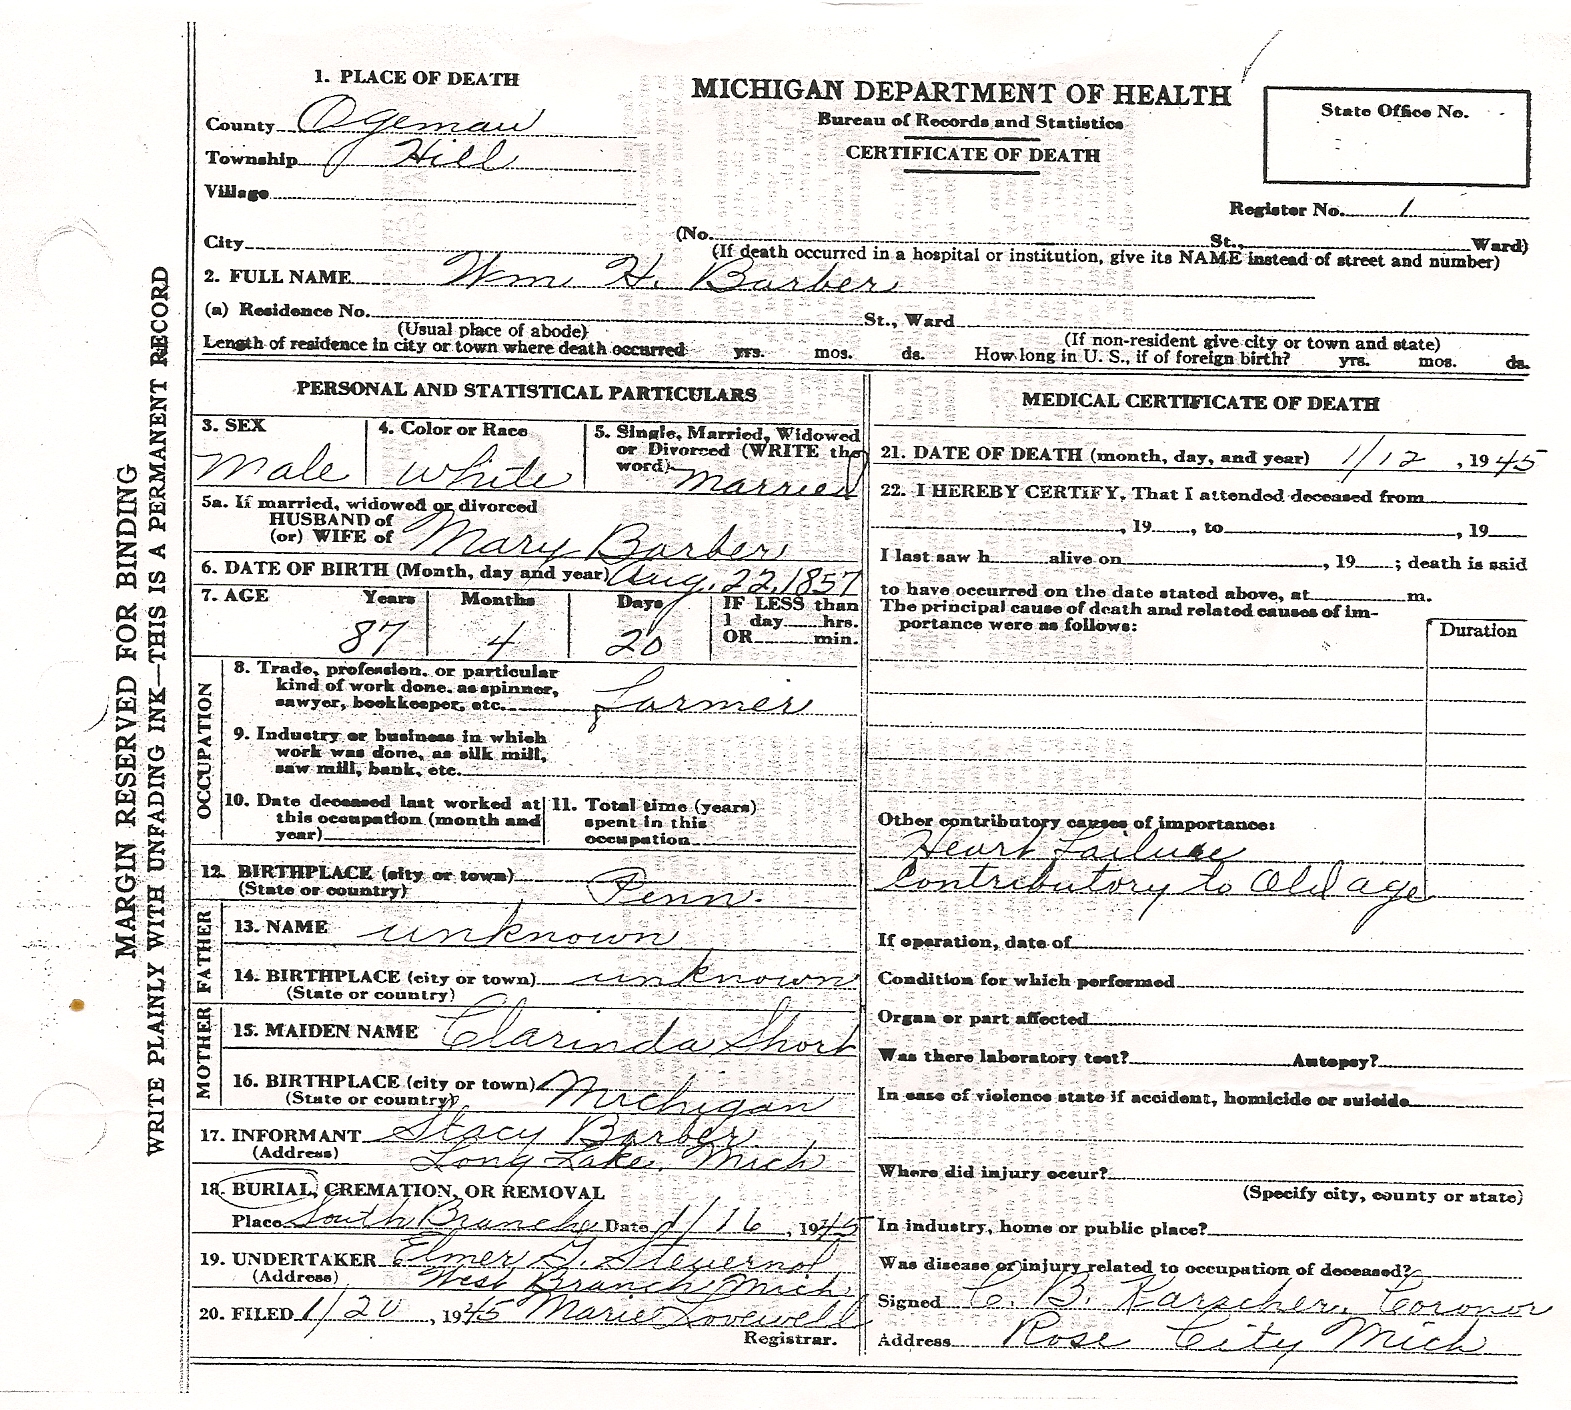 1. PLACE OF DEATH
County Ogemaw
Township Hill
Village
City
MICHIGAN DEPARTMENT OF HEALTH
Bureau of Records and Statistics
CERTIFICATE OF DEATH
State Office No.
Register No. 1
(No. St., Ward)
(If death occurred in a hospital or institution, give its NAME instead of street and number)
2. FULL NAME Wm H. Barber
(a) Residence No. St., Ward
(Usual place of abode) (If non-resident give city or town and state)
Length of residence in city or town where death occurred yrs. mos. ds. How long in U. S., if of foreign birth? yrs. mos. ds.
MARGIN RESERVED FOR BINDING
WRITE PLAINLY WITH UNFADING INK—THIS IS A PERMANENT RECORD
PERSONAL AND STATISTICAL PARTICULARS
3. SEX
Male
4. Color or Race
White
5. Single, Married, Widowed
or Divorced (WRITE the
word) Married
5a. If married, widowed or divorced
HUSBAND of
(or) WIFE of Mary Barber
6. DATE OF BIRTH (Month, day and year) Aug. 22, 1857
7. AGE Years Months Days IF LESS than
1 day hrs.
OR min.
87 4 20
OCCUPATION
8. Trade, profession, or particular
kind of work done, as spinner,
sawyer, bookkeeper, etc. Farmer
9. Industry or business in which
work was done, as silk mill,
saw mill, bank, etc.
10. Date deceased last worked at
this occupation (month and
year)
11. Total time (years)
spent in this
occupation
12. BIRTHPLACE (city or town)
(State or country) Penn.
FATHER
13. NAME unknown
14. BIRTHPLACE (city or town) unknown
(State or country)
MOTHER
15. MAIDEN NAME Clarinda Short
16. BIRTHPLACE (city or town) Michigan
(State or country)
17. INFORMANT Stacy Barber
(Address) Long Lake, Mich
18. BURIAL, CREMATION, OR REMOVAL
Place South Branch Date 1/16, 1945
19. UNDERTAKER Elmer G. Steuernol
(Address) West Branch Mich.
20. FILED 1/20, 1945 Marie Lovewell
Registrar.
MEDICAL CERTIFICATE OF DEATH
21. DATE OF DEATH (month, day, and year) 1/12, 1945
22. I HEREBY CERTIFY, That I attended deceased from
, 19 , to , 19
I last saw h alive on , 19 ; death is said
to have occurred on the date stated above, at m.
The principal cause of death and related causes of im-
portance were as follows:
Duration
Other contributory causes of importance:
Heart Failure
Contributory to Old age
If operation, date of
Condition for which performed
Organ or part affected
Was there laboratory test? Autopsy?
In case of violence state if accident, homicide or suicide
Where did injury occur?
(Specify city, county or state)
In industry, home or public place?
Was disease or injury related to occupation of deceased?
Signed C. B. Karscher, Coronor
Address Rose City Mich